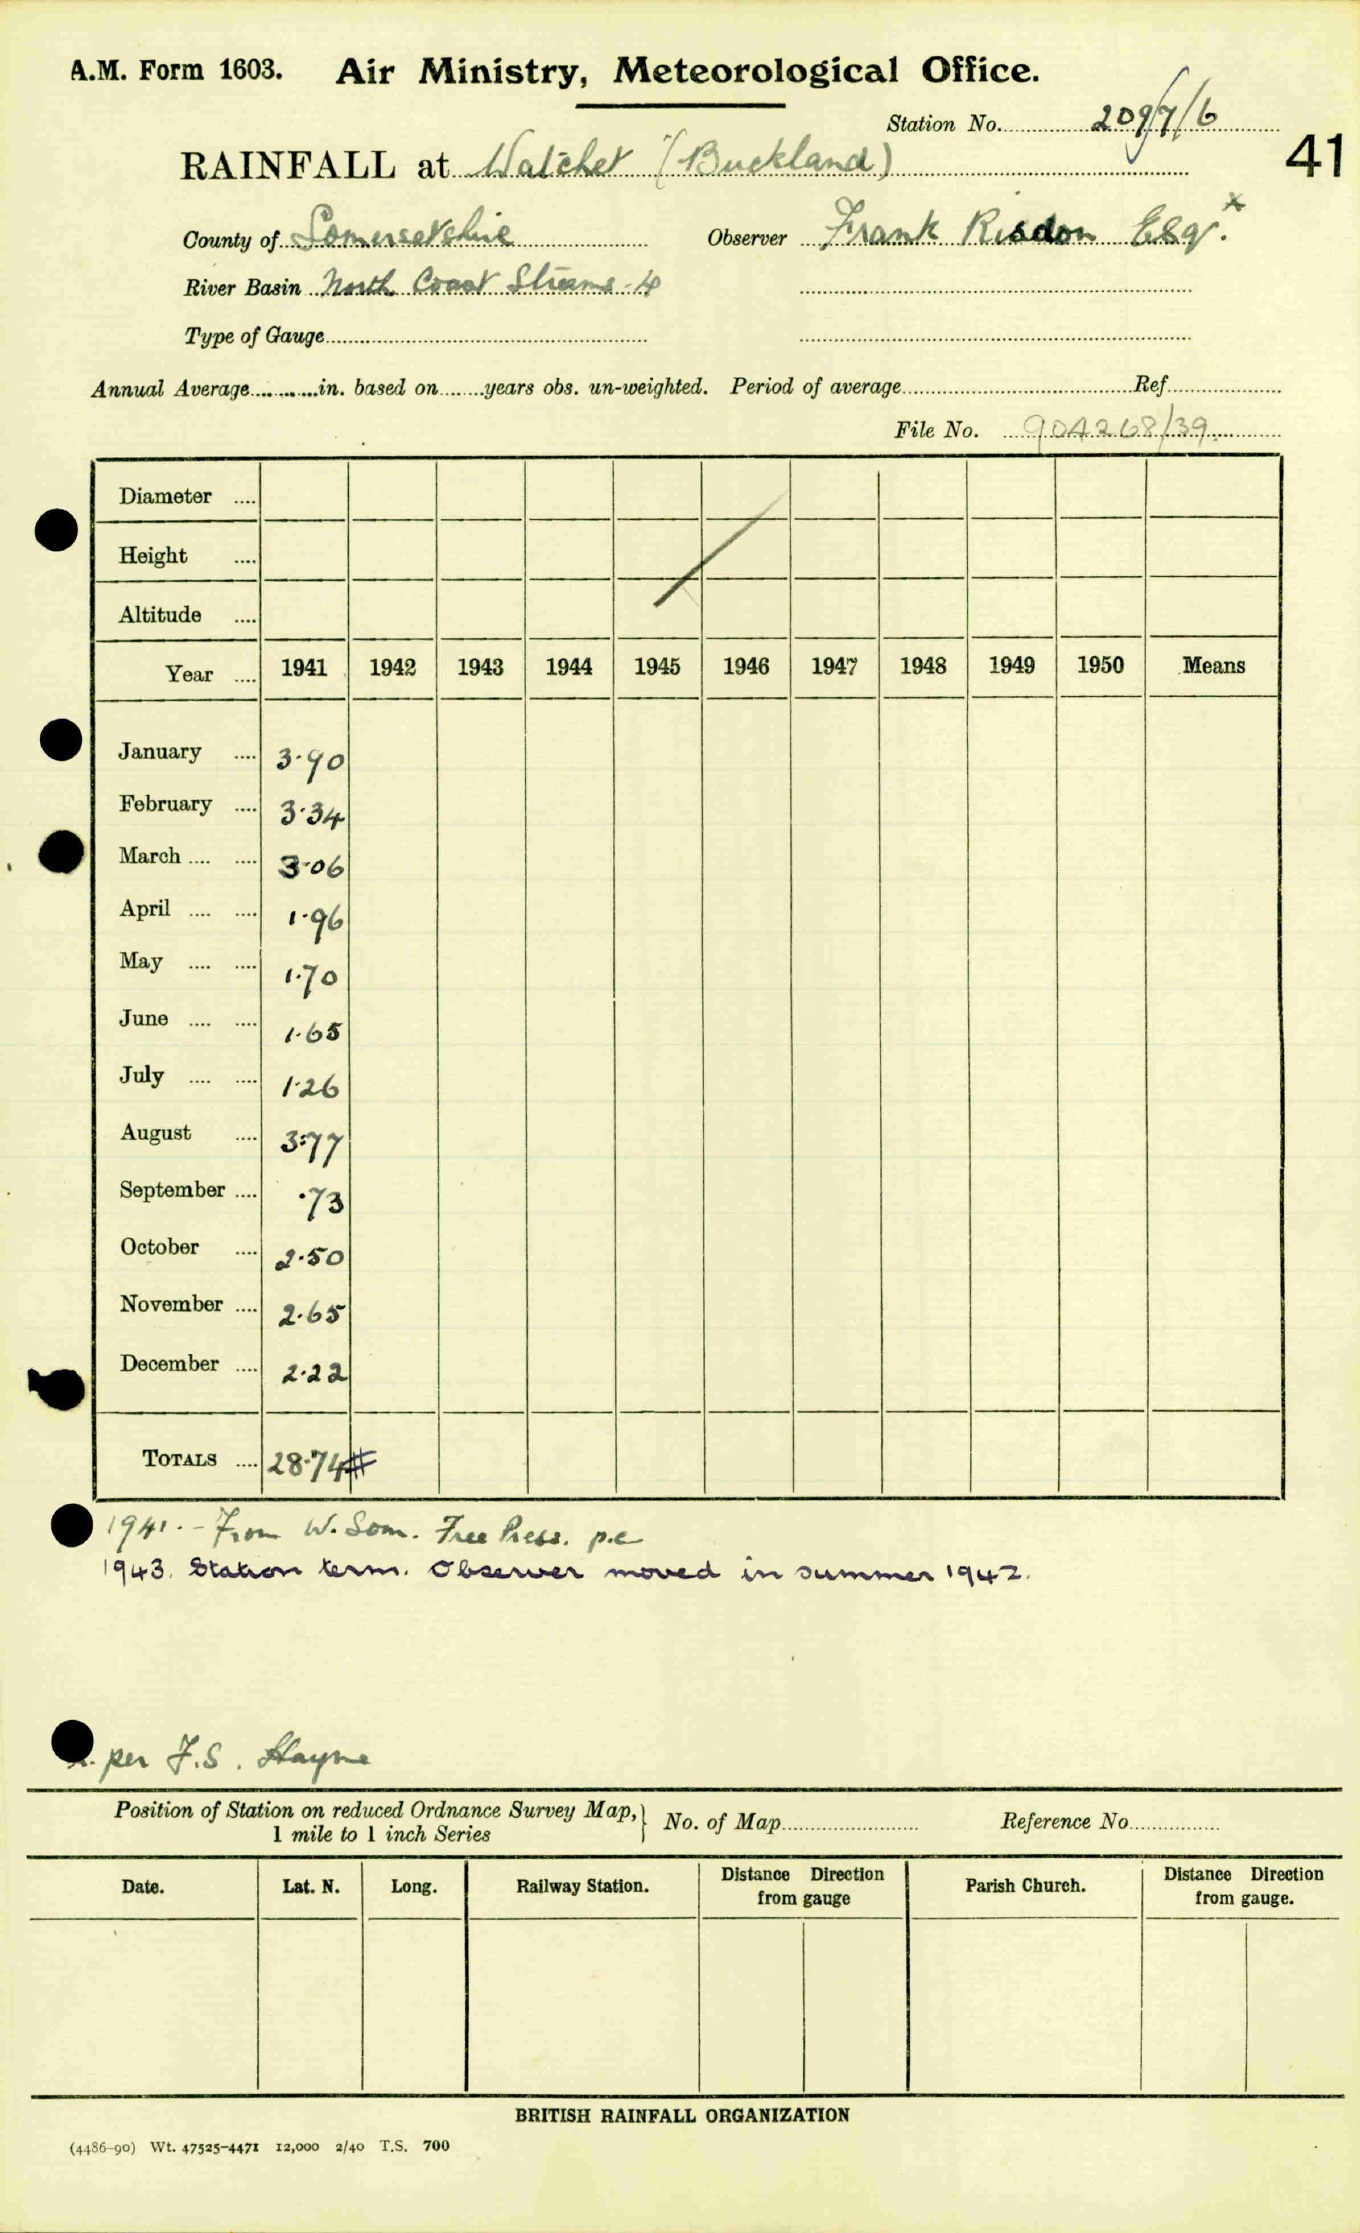 A.M. Form 1603. Air Ministry, Meteorological Office.
Station No. 209/7/6
41
RAINFALL at Watchet (Buckland)
County of Somersetshire Observer Frank Risdon Esq. x
River Basin North Coast Streams - 4
Type of Gauge
Annual Average in. based on years obs. un-weighted. Period of average Ref
File No. 904268/39
Diameter
Height
Altitude
Year 1941 1942 1943 1944 1945 1946 1947 1948 1949 1950 Means
January 3.90
February 3.34
March 3.06
April 1.96
May 1.70
June 1.65
July 1.26
August 3.77
September .73
October 2.50
November 2.65
December 2.22
TOTALS 28.74 #
1941. - From W. Som. Free Press. p.c
1943. Station term. Observer moved in summer 1942.
per F.S. Hayne
Position of Station on reduced Ordnance Survey Map, } No. of Map Reference No.
1 mile to 1 inch Series
Date. Lat. N. Long. Railway Station. Distance Direction from gauge Parish Church. Distance Direction from gauge.
BRITISH RAINFALL ORGANIZATION
(4486-90) Wt. 47525-4471 12,000 2/40 T.S. 700